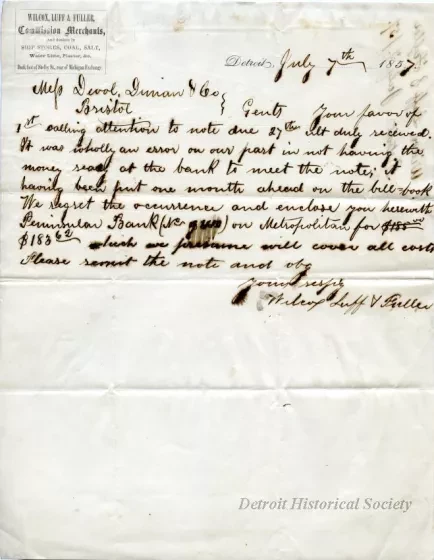 WILCOX, LUFF & FULLER,
Commission Merchants,
and dealers in
SHIP STORES, COAL, SALT,
Water Lime, Plaster, &c.
Dock foot of Shelby St., rear of Michigan Exchange.
Detroit, July 7th 1857
Mess Devol, Diman & Co
Bristol } Gents Your favor of
1st calling attention to note due 27th Ult duly received.
It was wholly an error on our part in not having the
money ready at the bank to meet the note; it
having been put one month ahead on the bill-book
We regret the occurrence and enclose you herewith
Peninsular Bank on Metropolitan for
$183 62 which we presume will cover all costs
Please remit the note and obg
Yours respy
Wilcox Luff & Fuller
Detroit Historical Society